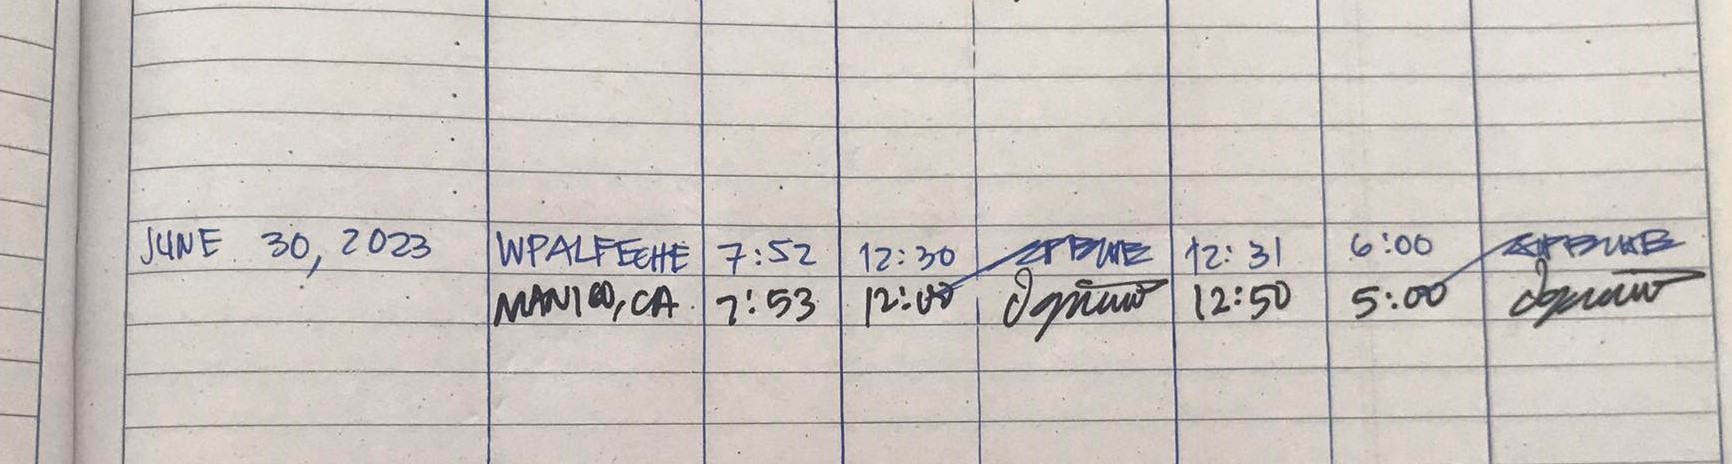 JUNE 30, 2023 WPALFECHE 7:52 12:30 12:31 6:00
MANIGO, CA 7:53 12:00 12:50 5:00